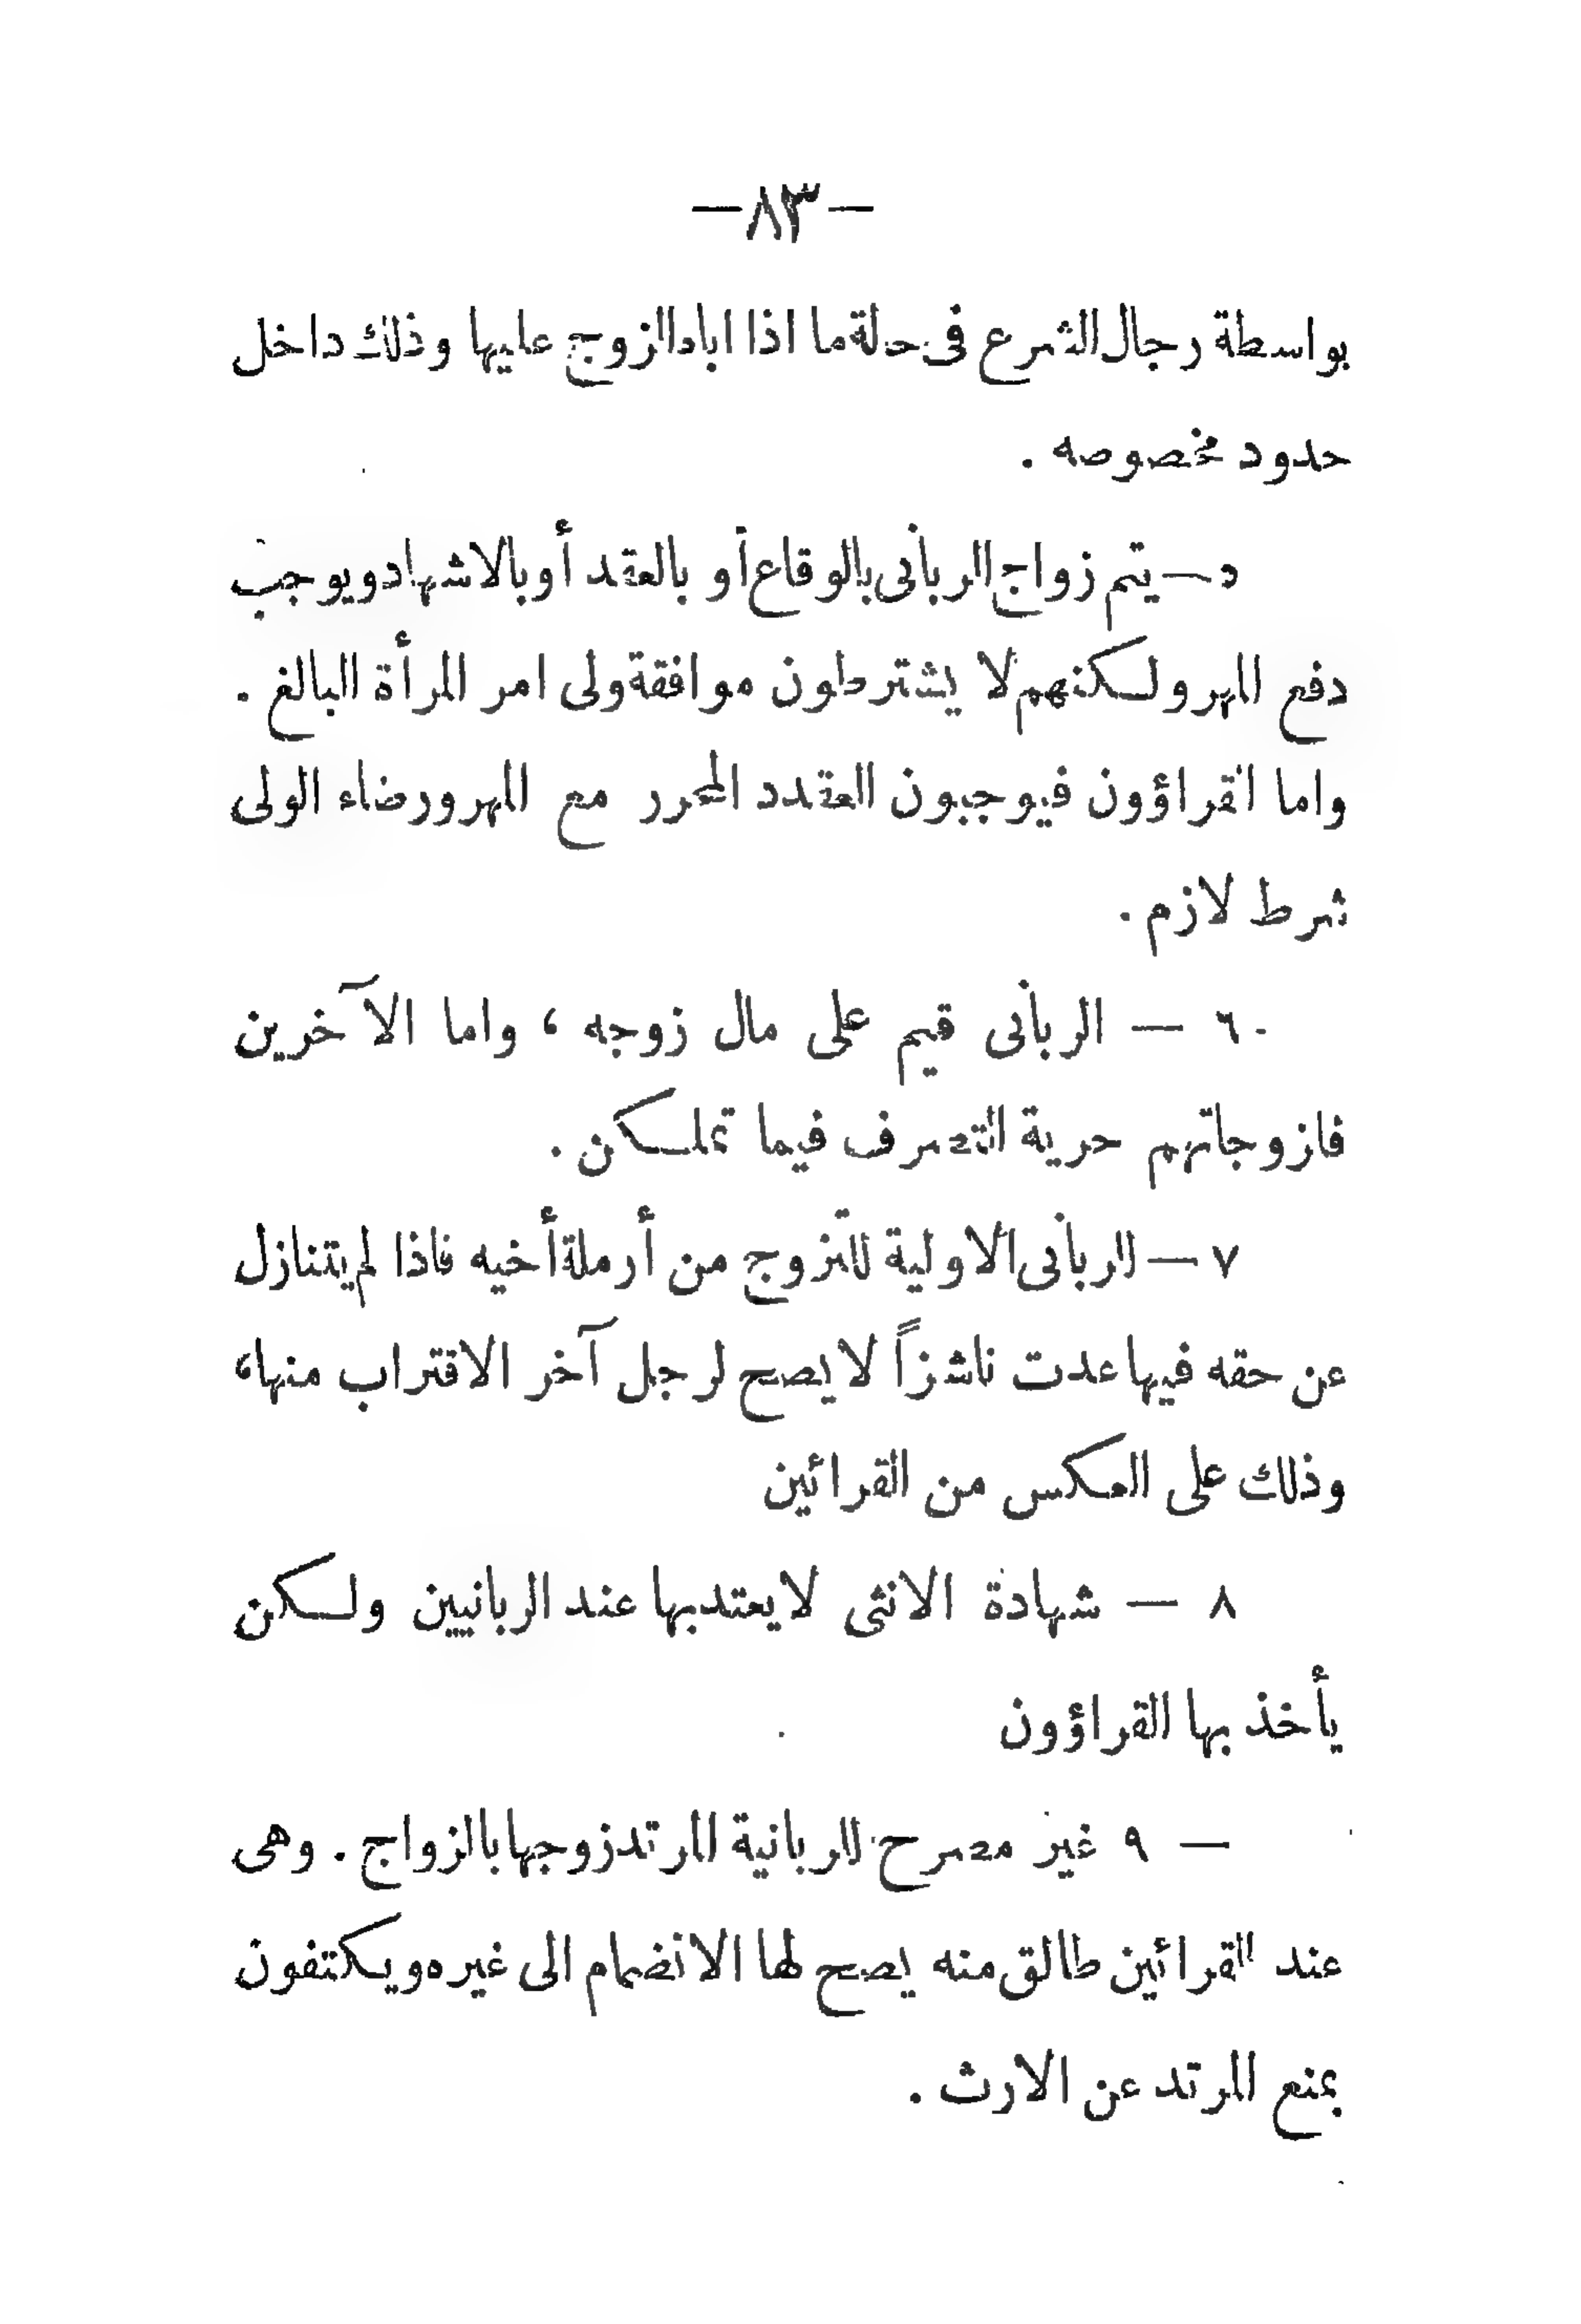 —٨٣—
بواسطة رجال الشرع فى حالة ما اذا اباه الزوج عليها وذلك داخل
حدود مخصوصه .
د — يتم زواج الربانى بالوقاع أو بالعقد أو بالاشهاد ويوجب
دفع المهر ولكنهم لا يشترطون موافقة ولى امر المرأة البالغ .
واما القراؤون فيوجبون العقدد المحرر مع المهر ورضاء الولى
شرط لازم .
٦ — الربانى قيم على مال زوجه ، واما الآخرين
فازوجاتهم حرية التصرف فيما تملكن .
٧ — للربانى الاولية للتزوج من أرملة أخيه فاذا لم يتنازل
عن حقه فيها عدت ناشزاً لا يصح لرجل آخر الاقتراب منها ،
وذلك على العكس من القرائين
٨ — شهادة الانثى لا يعتد بها عند الربانيين ولكن
يأخذ بها القراؤون
— ٩ غير مصرح للربانية المرتد زوجها بالزواج . وهى
عند القرائين طالق منه يصح لها الانضمام الى غيره ويكتفون
بمنع المرتد عن الارث .